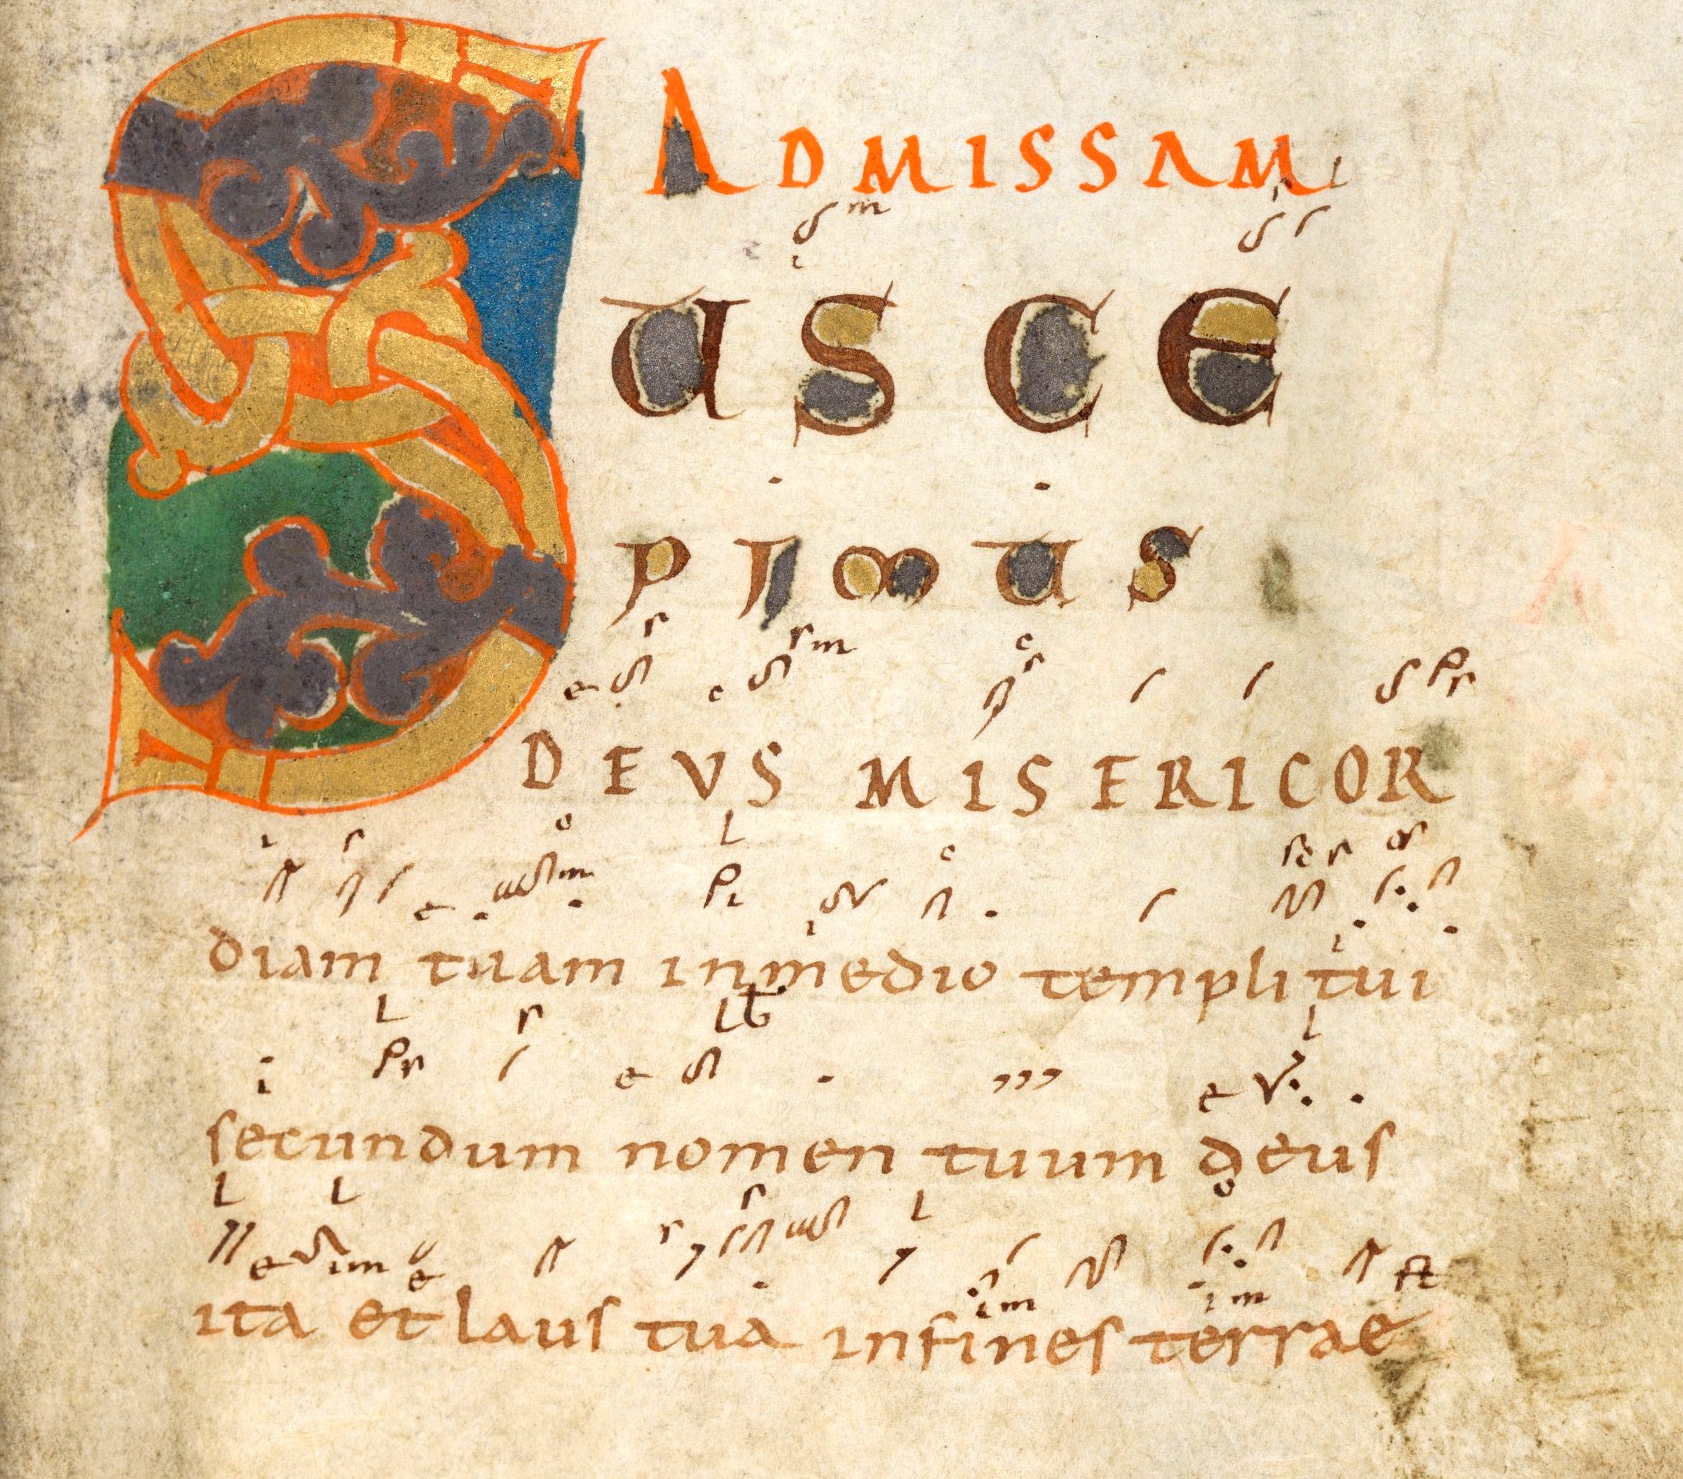 AD MISSAM
SUSCE
PIMUS
DEVS MISERICOR
diam tuam in medio templi tui
secundum nomen tuum deus
ita et laus tua in fines terrae